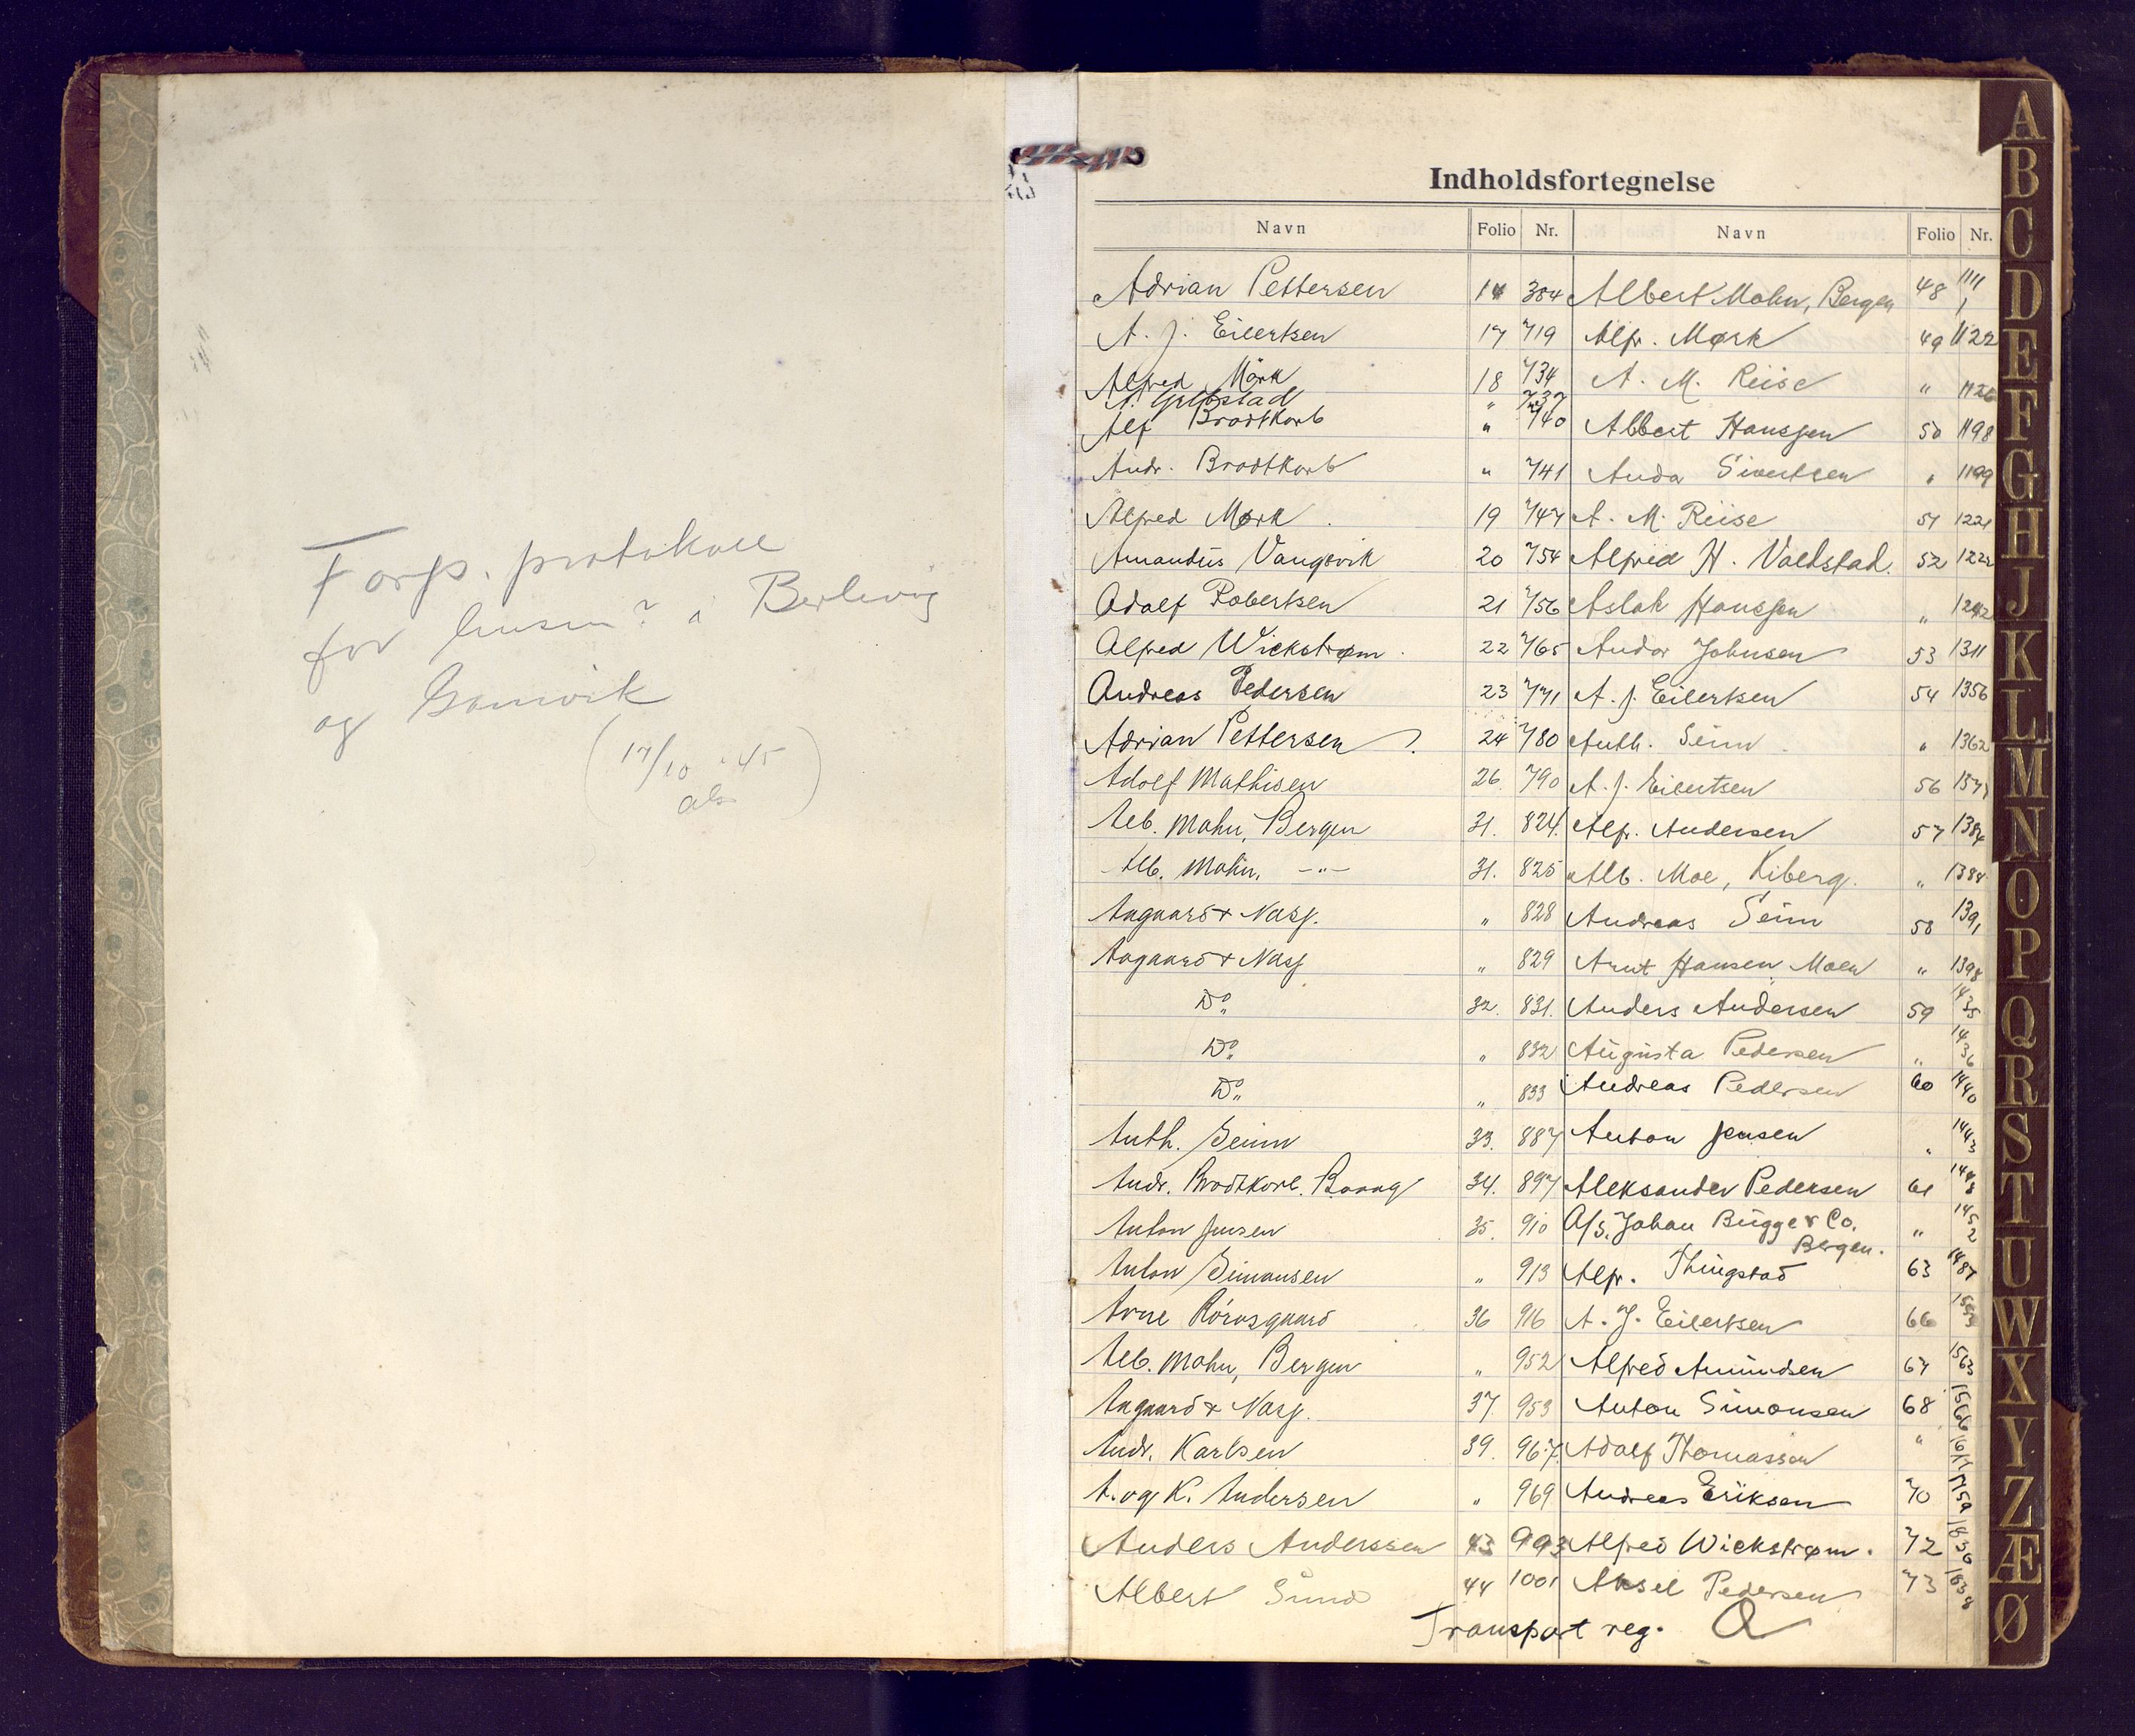 Forp. protokoll
for husm? i Berlevig
og Gamvik
(17/10 . 45
als)
Indholdsfortegnelse
Navn Folio Nr. Navn Folio Nr.
Adrian Pettersen 14 384 Albert Mohn, Bergen 48 1111
A. J. Eilertsen 17 719 Alfr. Mørk 49 1122
Alfred Mörk 18 734 A. M. Reise " 1126
A. Gjelbstad " 737
Alf Brodtkorb " 740 Albert Hanssen 50 1198
Andr. Brodtkorb " 741 Anda Sivertsen " 1199
Alfred Mørk 19 747 A. M. Reise 51 1221
Amandus Vangsvik 20 754 Alfred H. Voldstad. 52 1222
Adolf Robertsen 21 756 Aslak Hanssen " 1242
Alfred Wickstrøm 22 765 Andor Johnsen 53 1311
Andreas Pedersen 23 771 A. J. Eilertsen 54 1356
Adrian Pettersen 24 780 Anth. Seim " 1362
Adolf Mathisen 26. 790 A. J. Eilertsen 56
Alb. Mohn, Bergen 31. 824. Alfr. Andersen 57 1384
Alb. Mohn, -"- 31. 825 Alb. Moe, Kiberg. " 1384
Aagaard & Nass. " 828 Andreas Seim 58 1391
Aagaard & Nass " 829 Arnt Hansen Moen " 1398
Do 32. 831. Anders Andersen 59 1435
Do " 832 Augusta Pedersen " 1436
Do " 833 Andreas Pedersen 60 1440
Anth. Seim 33. 887 Anton Jensen " 1443
Andr. Brodtkorb. Baarg 34. 897 Aleksander Pedersen 61 1448
Anton Jensen 35. 910 A/S. Johan Bugge & Co. " 1452
Bergen.
Anton Simonsen " 913 Alfr. Thingstad 63 1487
Arne Rörosgaard 36 916 A. J. Eilertsen 66 1553
Alb. Mohn, Bergen " 952 Alfred Amundsen 67 1563
Aagaard & Nass. 37. 953 Anton Simonsen 68 1566
Andr. Karlsen 39. 967. Adolf Thomassen " 1617
A. og K. Andersen " 969 Andreas Eriksen 70 1759
Anders Anderssen 43 993 Alfred Wickstrøm. 72 1836
Albert Sund 44 1001 Aksel Pedersen 73 1838
Transport reg. A
A
B
C
D
E
F
G
H
J
K
L
M
N
O
P
Q
R
S
T
U
W
X
Y
Z
Æ
Ø